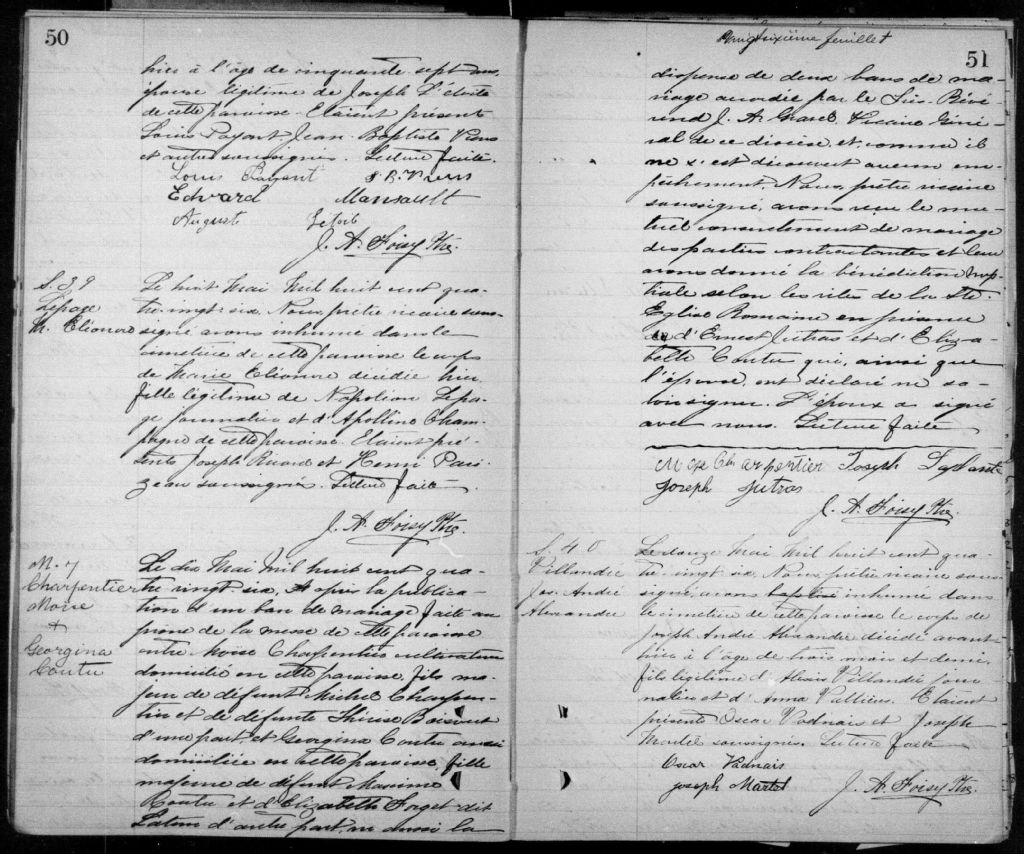 50
hier à l'âge de cinquante sept ans,
épouse légitime de Joseph L'étoile
de cette paroisse. Etaient présents
Louis Payant Jean-Baptiste Viens
et autres soussignés. Lecture faite.
Louis Payant J. B. Viens
Edward Mansault
Auguste Letoile
J. A. Foisy Ptre.
S. 39
Lepage
M. Elionore
Le huit Mai Mil huit cent qua-
tre-vingt-six, Nous, prêtre vicaire sous-
signé avons inhumé dans le
cimetière de cette paroisse le corps
de Marie Elionore décédée hier,
fille légitime de Napoléon Lepa-
ge journalier et d'Apolline Cham-
pagne de cette paroisse. Etaient pré-
sents Joseph Ricard et Henri Pari-
zeau soussignés. Lecture faite.
J. A. Foisy Ptre.
M. 7
Charpentier
Moïse
+
Georgina
Coutu
Le dix Mai Mil huit cent qua-
tre vingt-six, après la publica-
tion d'un ban de mariage faite au
prône de la messe de cette paroisse
entre Moïse Charpentier cultivateur
domicilié en cette paroisse, fils ma-
jeur de défunt Michel Charpen-
tier et de défunte Thérèse
d'une part, et Georgina Coutu aussi
domiciliée en cette paroisse, fille
majeure de défunt Maxime
Coutu et d'Elizabeth Forget-dit
Latour d'autre part, vu aussi la
Vingtsixième feuillet
51
dispense de deux bans de ma-
riage accordée par le Très-Révé-
rend J. A. Gravel Vicaire Géné-
ral de ce diocèse et comme il
ne s'est découvert aucun em-
pêchement, Nous, prêtre vicaire
soussigné, avons reçu le mu-
tuel consentement de mariage
des parties contractantes et leur
avons donné la bénédiction nup-
tiale selon les rites de la Ste.
Eglise Romaine en présence
d'Ernest Jutras et d'Eliza-
beth Coutu qui, ainsi que
l'épouse, ont déclaré ne sa-
voir signer. L'époux a signé
avec nous. Lecture faite
Moise Charpentier Joseph
Joseph Jutras
J. A. Foisy Ptre.
S. 40
Villandié
Jos. André
Alexandre
Le douze Mai Mil huit cent qua-
tre-vingt-six, Nous, prêtre vicaire sous-
signé avons baptisé inhumé dans
le cimetière de cette paroisse le corps de
Joseph André Alexandre décédé avant-
hier à l'âge de trois mois et demi,
fils légitime d'Alexis Villandié jour-
nalier et d'Anna Vallières. Etaient
présents Oscar Vadnais et Joseph
Martel soussignés. Lecture faite
Oscar Vadnais
Joseph Martel J. A. Foisy Ptre.